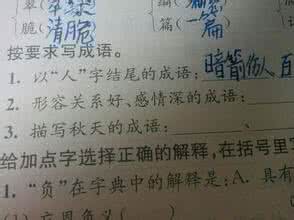 脆(清脆) 篇(一篇)
按要求写成语。
1. 以“人”字结尾的成语:暗箭伤人 百
2. 形容关系好、感情深的成语:
3. 描写秋天的成语: 、
给加点字选择正确的解释,在括号里写
1. “负”在字典中的解释是:A. 具有